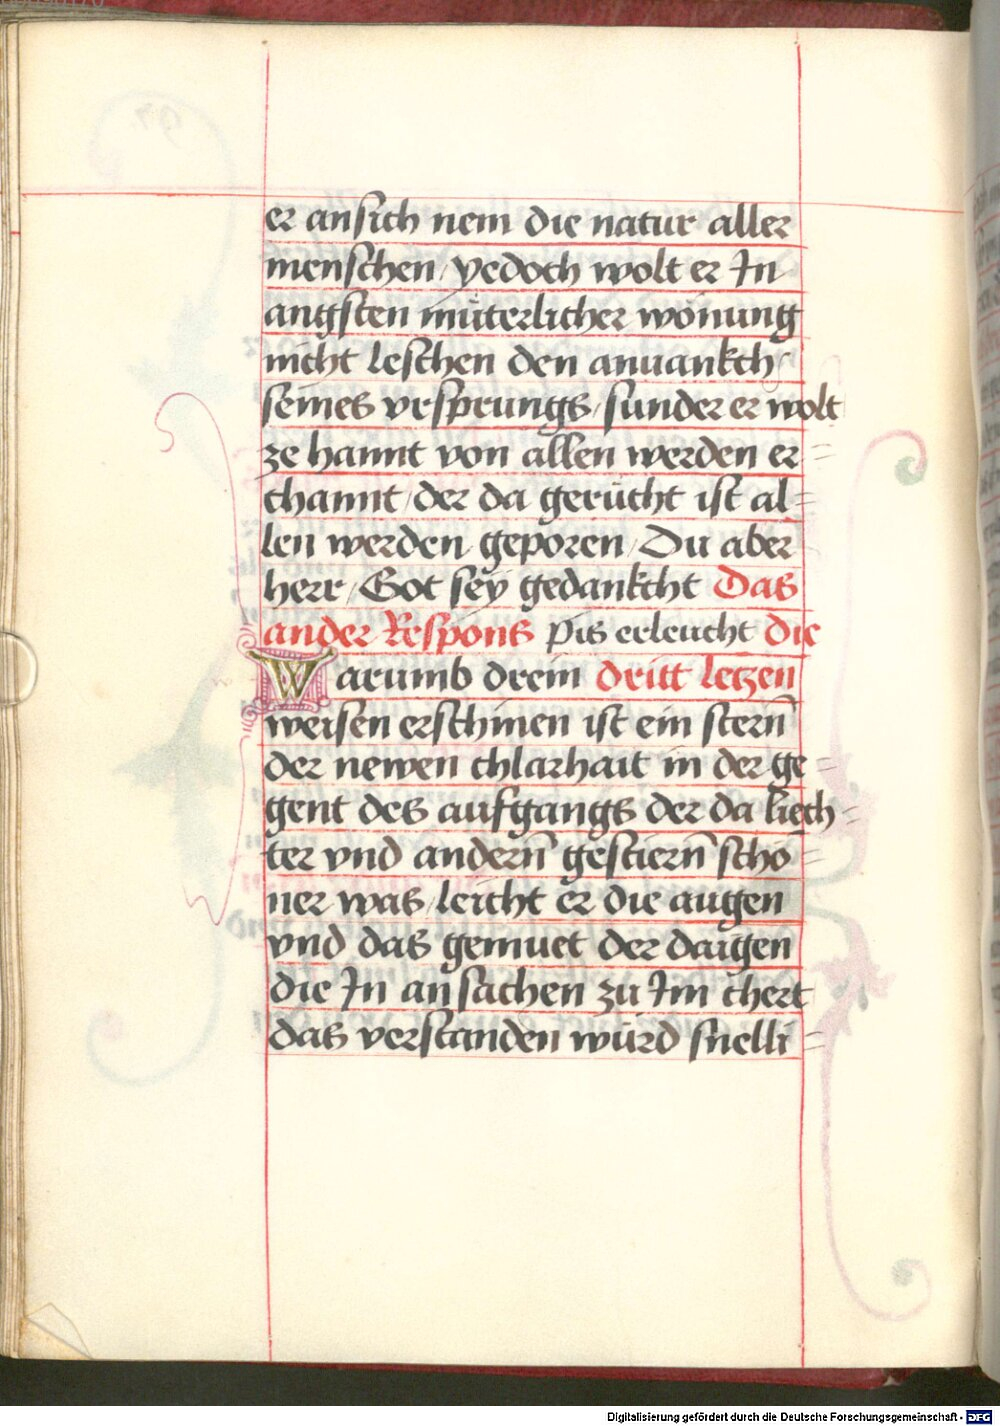 er ansich nem die natur aller
menschen / yedoch wolt er In
angsten müterlicher wonung
nicht leschen den anuankch
seines vrsprungs / sunder er wolt
ze hannt von allen werden er
channt / der da gerücht ist al=
len werden geporen / Du aber
herr / Got sey gedankcht Das
ander Respons Pis erleucht die
Warumb drein dritt letzen
weisen erschinen ist ein stern
der newen chlarhait in der ge=
gent des aufgangs der da liech=
ter vnd andern gestiern scho=
ner was / leicht er die augen
vnd das gemuet der daigen
die In ansachen zu Im chert
das verstanden würd snelli=
Digitalisierung gefördert durch die Deutsche Forschungsgemeinschaft - DFG